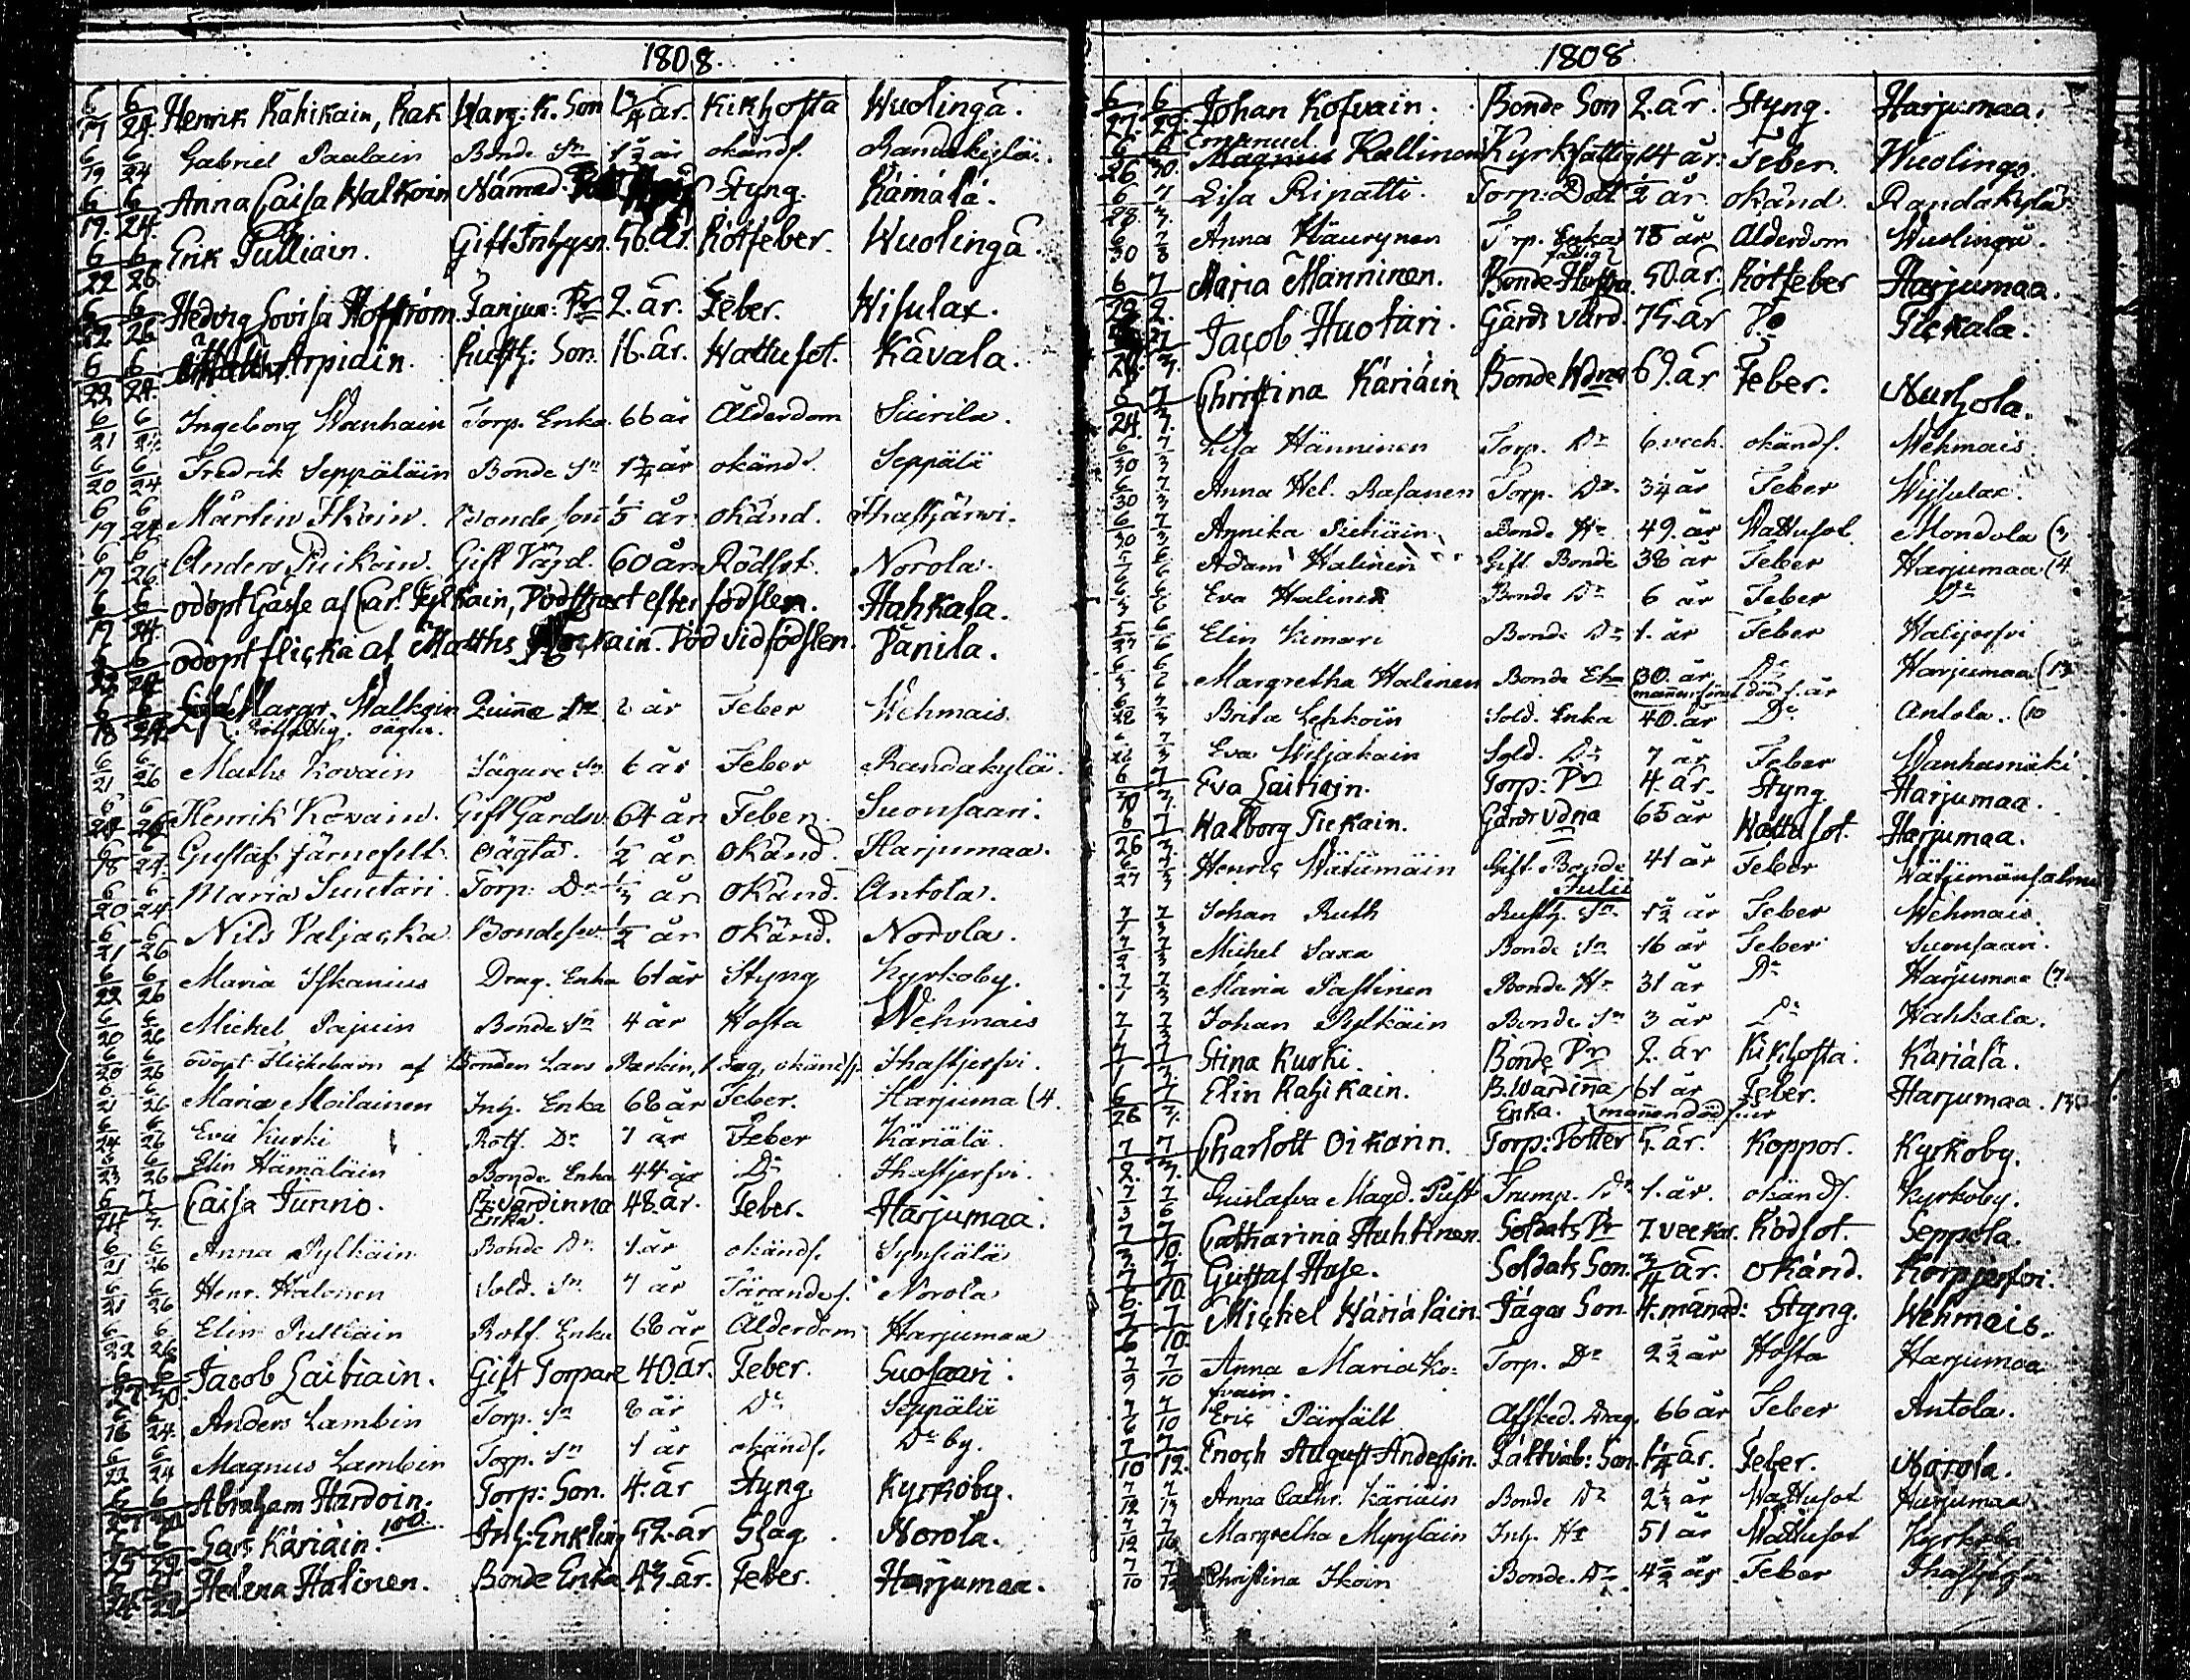 1808.
6/17 6/24. Henrik Rahikain, Rak Warg: K. Son 1 3/4 år. Kikhosta Wuolinga.
6/19 6/24 Gabriel Paalain Bonde Sn 1 1/2 år okänds. Randakylä.
6/19. 6/24. Anna Caisa Walkoin Nämad. Styng. Kämälä.
6/22 6/26. Erik Pulliain. Gift Inhysn. 56. år. Rötfeber. Wuolinga.
6/22 6/26 Hedvig Lovisa Hoffröm. Fanjun: Dr 2. år. Feber. Wisulax.
6/22 6/24. Arpiain. Rusth: Son. 16. år. Wattusot. Kävala.
6/21 Ingeborg Wanhain Torp. Enka 66 år Ålderdom Siirila.
6/20 6/24 Fredrik Seppäläin Bonde Sn 1 3/4 år okänds. Seppälä
6/19 6/24 Mårten Ikoin. Bonde son 5 år okänd. Ihastjärwi.
6/19 6/26 Anders Puikoin. Gift 60 år Rödsot. Norola.
6/19 6/24. odöpt Gåsse af Carl Pylkäin, Död strax efter födslen. Hahkala.
odöpt flicka af Matths Död vid födslen. Panila.
6/18 6/24 Margr. Walkoin Quinna Dr 2 år Feber Wehmais
oägta.
6/21 6/26 Maths Kovain Jägare Sn 6 år Feber Randakylä.
6/24 6/26 Henrik Kovain. Gift Gårdsv. 64 år Feber. Suonsaari.
6/18 6/24. Gustaf Järnefelt oägta. 1/2 år okänd. Harjumaa.
6/20 6/24. Maria Suutari Torp: Dr 1/3 år okänd. Antola.
6/21 6/26 Nils Valjacka Bondeson 1/2 år okänd. Norola.
6/22 6/26 Maria Iskanius Drag. Enka 61 år Styng Kyrkoby.
6/20 6/26 Michel Pajuin Bonde Sn 4 år Hosta Wehmais
6/20 6/26 odöpt Flickebarn af Bonden Lars Parkin, 1 dag, okänds. Ihastjerfvi.
6/21 6/26 Maria Moilainen Inh. Enka 68 år Feber. Harjuma (4.
6/24 6/26 Eva Kurki Rotf. Dr 7 år Feber Käriälä.
6/23 6/26 Elin Hämäläin Bonde Enka 44 år Do Ihastjerfvi.
6/24 7/7. Caisa Tunnio. B: värdinna Enka. 48. år. Feber. Harjumaa.
6/21 6/26 Anna Pylkäin Bonde Dr 1. år okänds. Synsiälä
6/21 6/26 Henr. Halonen Sold. Sn 7 år Tärandes. Norola
6/22 6/26 Elin Pulliain Rotf. Enka 68 år Ålderdom Harjumaa
6/27 6/30. Jacob Laitiain. Gift Torpare 40. år. Feber. Suosaari.
6/16 6/24. Anders Lambin Torp. Sn 2 år Do Seppälä
6/22 6/24 Magnus Lambin Torp. Sn 1 år okänds. De by.
Abraham Hardoin. Torp: Son. 4. år Styng. Kyrkoby.
100.
6/25 6/29. Lars Käriäin. Inh: Enkling 52. år Slag. Norola.
Helena Halinen. Bonde Enka 43. år. Feber. Harjumaa.
1808.
6/27. 6/29. Johan Kofvain. Bonde Son 2. år. Styng. Harjumaa.
Emanuel
6/26 6/30. Kallinen Kyrkfattig 14 år: Feber. Wuolinga.
6/28 7/3. Lisa Ripatti. Torp: Dott 1/2 år okänd. Randakylä
6/30 7/3 Anna Häurynen Torp. Enka fattig 75 år Ålderdom Wuolinga.
6/29 7/2. Maria Manninen. Bonde Hustru. 50. år. Rötfeber Harjumaa.
Jacob Huotari. Gårds värd. 75. år Do Tickala.
6/24. 7/7. Christina Käriäin Bonde Wdna 69. år Feber. Nurhola.
6/30 7/3 Lisa Hänninen Torp. Dr 6. veck. okänds. Wehmais
6/30 7/3 Anna Hel. Rasanen Torp. Dr. 3 1/4 år Feber Wisulax.
6/30 7/3 Annika Pietiäin Bonde Hu 49. år Wattusot Mondola (3
Adam Halinen Gift Bonde 38 år Feber Harjumaa (4
Eva Halinen Bonde Dr 6 år Feber Do
Elin Kimari Bonde Dr 1. år Feber Halijerfvi
Margretha Halinen Bonde Eka 30. år Do Harjumaa
mannen förut död s. år
Brita Lehkoin Sold. Enka 40. år Do Antola. (10
Eva Wiljakain Sold. Dr 7 år Feber Wanhamäki
6/30 7/3. Eva Laitiain. Torp: Dr 4. år. Styng Harjumaa.
6/26 7/3. Walborg Tiekain. Gårds Vdna 65 år Wattusot. Harjumaa.
6/27 7/3 Henric Wätämäin Gift. Bonde 41 år Feber
Julii
Johan Ruth Rusth. Sn. 1 1/2 år Feber Wehmais
Michel Saxa Bonde Sn 16 år Feber Suonsaari.
7/1 7/3 Maria Pastinen Bonde Hu 31 år Do Harjumaa
7/1 7/3 Johan Pylkäin Bonde Sn 3 år Do Hahkala.
7/1 7/3. Stina Kurki. Bonde Dr 2. år Kikhosta. Käriälä.
6/26 7/7. Elin Rahikain. B. Wärdinna Enka. 61 år Feber. Harjumaa.
mannen död s. år
7/2. 7/3. Charlott Oikarin. Torp: Dotter 5. år. Koppor. Kyrkoby.
7/3 7/6 Gustafva Magd. Trump. Dr 1. år. okänds. Kyrkoby.
7/3. 7/10. Catharina Huhtinen. Soldats Dr 7. veckor. Rödsot. Seppola.
7/6. 7/10. Gustaf Hase. Soldats Son. 3/4 år. okänd. Korpjerfvi.
7/6 7/10. Michel Wäriäläin. Jägar Son. 4. månad: Styng. Wehmais.
7/9 7/10 Anna Maria Ko- Torp. Dr 2 1/2 år Hosta Harjumaa
fvain.
7/6 7/10 Eric Pärfält Afsked. Drag. 66 år Feber Antola.
7/10 7/12. Enoch August Anderssin. Fältväb: Son. 1 1/4 år. Feber. Norola.
7/12 7/17 Anna Cathr. Käriäin Bonde Dr 2 1/4 år Wattusot Harjumaa
7/12 Margretha Myryläin Inh. Hu 51 år Wattusot Kyrkoby
7/10 Christina Ikoin Bonde. Dr 4 1/2 år Feber